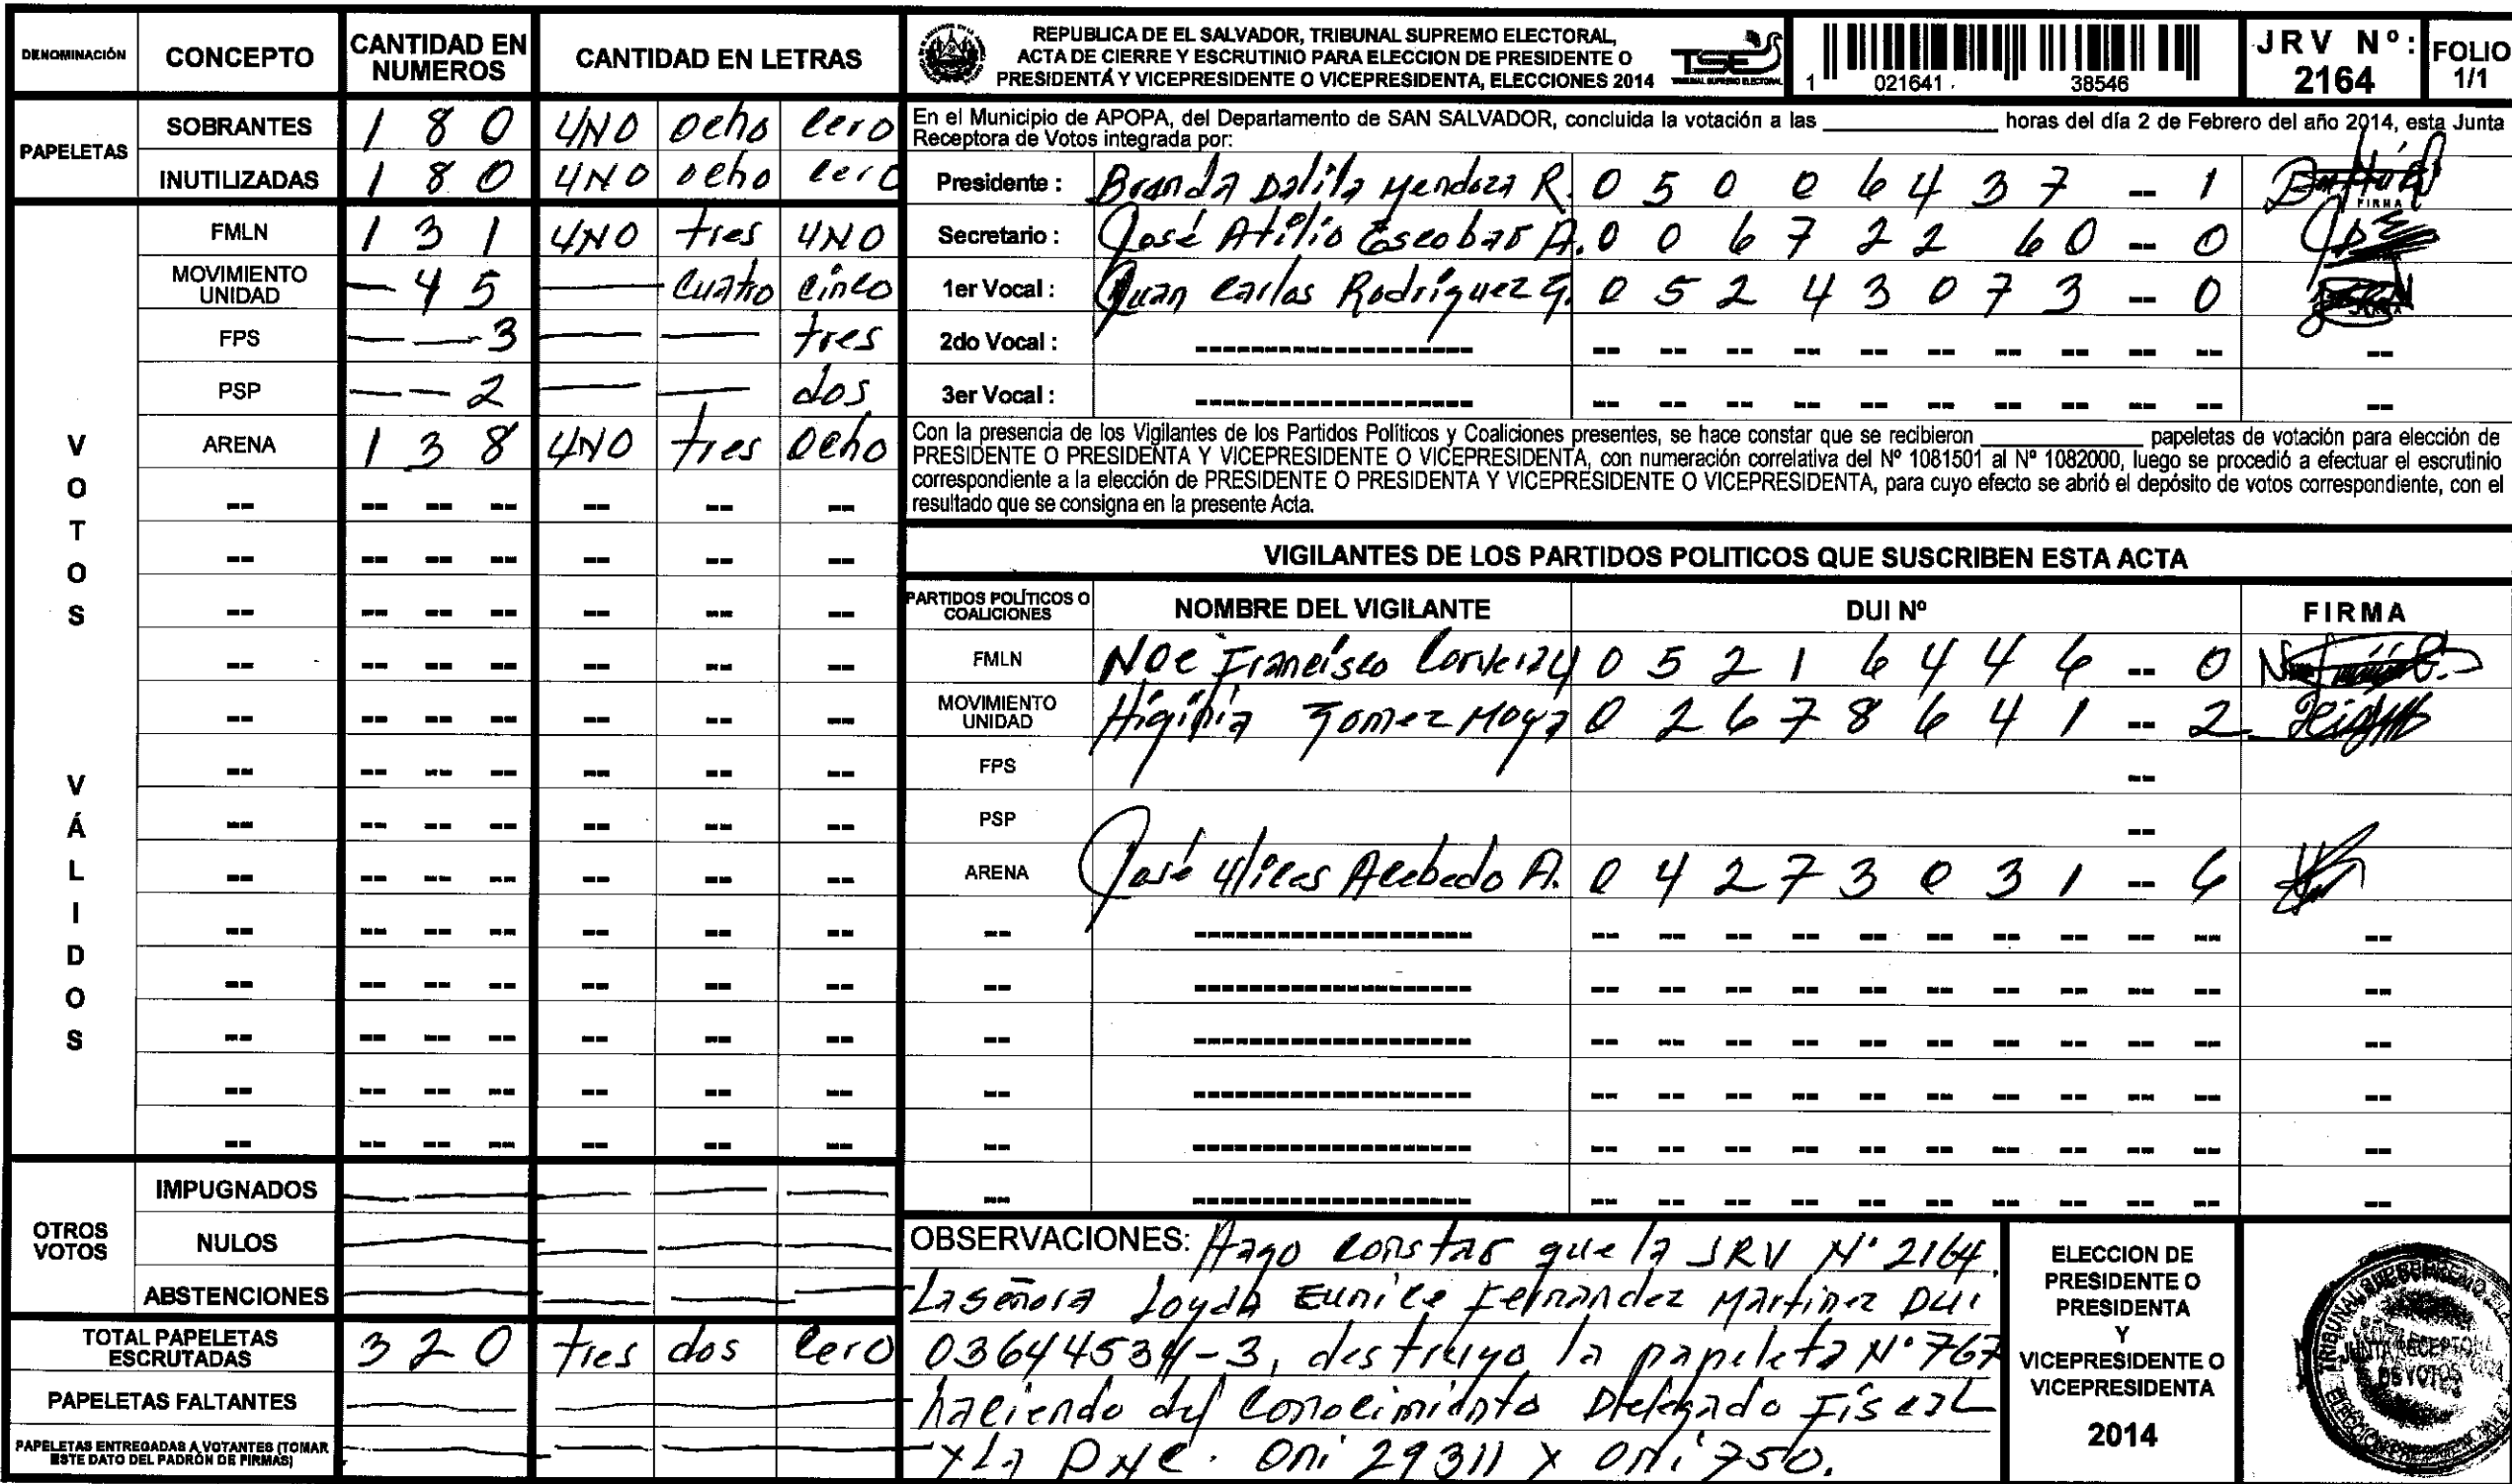 DENOMINACIÓN CONCEPTO CANTIDAD EN NUMEROS CANTIDAD EN LETRAS
PAPELETAS
SOBRANTES 1 8 0 UNO ocho cero
INUTILIZADAS 1 8 0 UNO ocho cero
VOTOS VÁLIDOS
FMLN 1 3 1 UNO tres UNO
MOVIMIENTO UNIDAD — 4 5 — cuatro cinco
FPS — — 3 — — tres
PSP — — 2 — — dos
ARENA 1 3 8 UNO tres ocho
OTROS VOTOS
IMPUGNADOS — — — — —
NULOS — — — —
ABSTENCIONES — — — —
TOTAL PAPELETAS ESCRUTADAS 3 2 0 tres dos cero
PAPELETAS FALTANTES — — —
PAPELETAS ENTREGADAS A VOTANTES (TOMAR ESTE DATO DEL PADRÓN DE FIRMAS) — — —
REPUBLICA DE EL SALVADOR, TRIBUNAL SUPREMO ELECTORAL,
ACTA DE CIERRE Y ESCRUTINIO PARA ELECCION DE PRESIDENTE O
PRESIDENTA Y VICEPRESIDENTE O VICEPRESIDENTA, ELECCIONES 2014
TSE
TRIBUNAL SUPREMO ELECTORAL
1 021641 . 38546
JRV Nº: 2164
FOLIO 1/1
En el Municipio de APOPA, del Departamento de SAN SALVADOR, concluida la votación a las ____ horas del día 2 de Febrero del año 2014, esta Junta
Receptora de Votos integrada por:
Presidente : Brenda Dalila Mendoza R. 0 5 0 0 6 4 3 7 -- 1
FIRMA
Secretario : José Atilio Escobar A. 0 0 6 7 2 2 6 0 -- 0
1er Vocal : Juan Carlos Rodríguez G. 0 5 2 4 3 0 7 3 -- 0
2do Vocal :
3er Vocal :
Con la presencia de los Vigilantes de los Partidos Políticos y Coaliciones presentes, se hace constar que se recibieron ____ papeletas de votación para elección de
PRESIDENTE O PRESIDENTA Y VICEPRESIDENTE O VICEPRESIDENTA, con numeración correlativa del Nº 1081501 al Nº 1082000, luego se procedió a efectuar el escrutinio
correspondiente a la elección de PRESIDENTE O PRESIDENTA Y VICEPRESIDENTE O VICEPRESIDENTA, para cuyo efecto se abrió el depósito de votos correspondiente, con el
resultado que se consigna en la presente Acta.
VIGILANTES DE LOS PARTIDOS POLITICOS QUE SUSCRIBEN ESTA ACTA
PARTIDOS POLÍTICOS O COALICIONES NOMBRE DEL VIGILANTE DUI Nº FIRMA
FMLN Noe Francisco 0 5 2 1 6 4 4 6 -- 0
MOVIMIENTO UNIDAD Higinia Gomez Moya 0 2 6 7 8 6 4 1 -- 2
FPS --
PSP --
ARENA José Ulices Acebedo A. 0 4 2 7 3 0 3 1 -- 6
OBSERVACIONES: Hago constar que la JRV Nº 2164.
La señora Loyda Eunice Fernández Martinez DUI
03644534-3, destruyo la papeleta Nº 767
haciendo del conocimiento Delegado Fiscal
y La PNC. Oni 29311 y Oni 750.
ELECCION DE
PRESIDENTE O
PRESIDENTA
Y
VICEPRESIDENTE O
VICEPRESIDENTA
2014
TRIBUNAL SUPREMO
JUNTA RECEPTORA
DE VOTOS